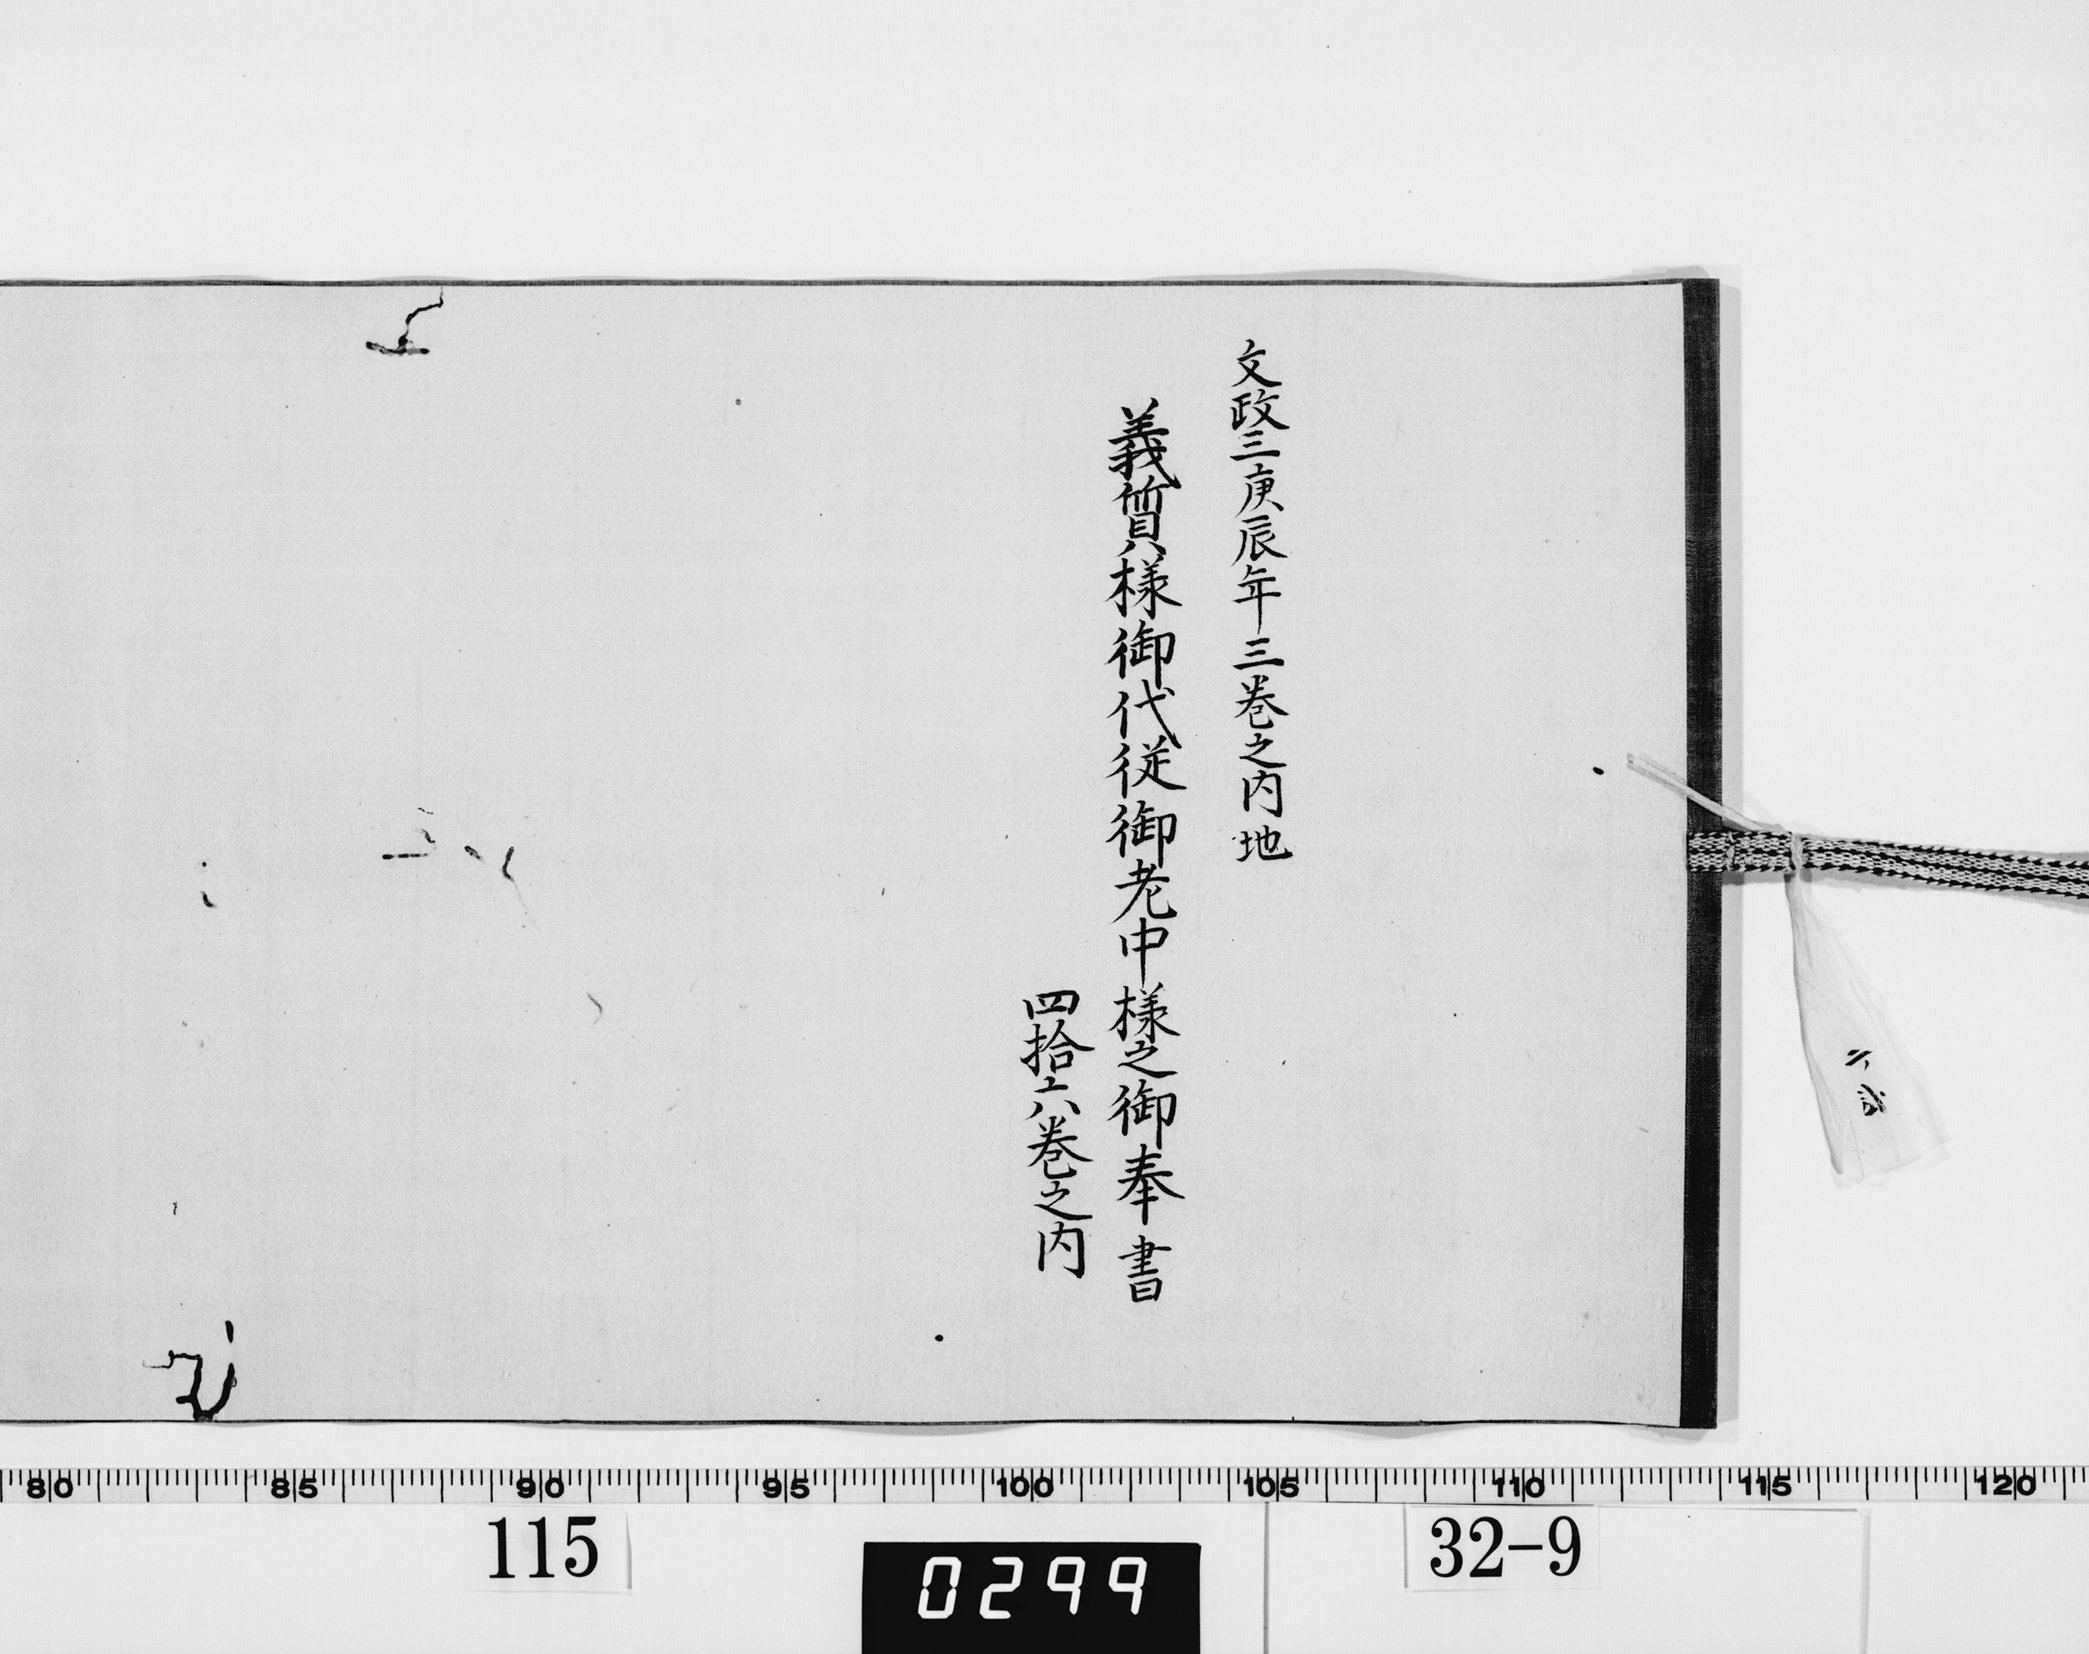 文政三庚辰年三巻之内地
義質様御代従御老中様之御奉書
四拾六巻之内
80 85 90 95 100 105 110 115 120
115
0299
32-9